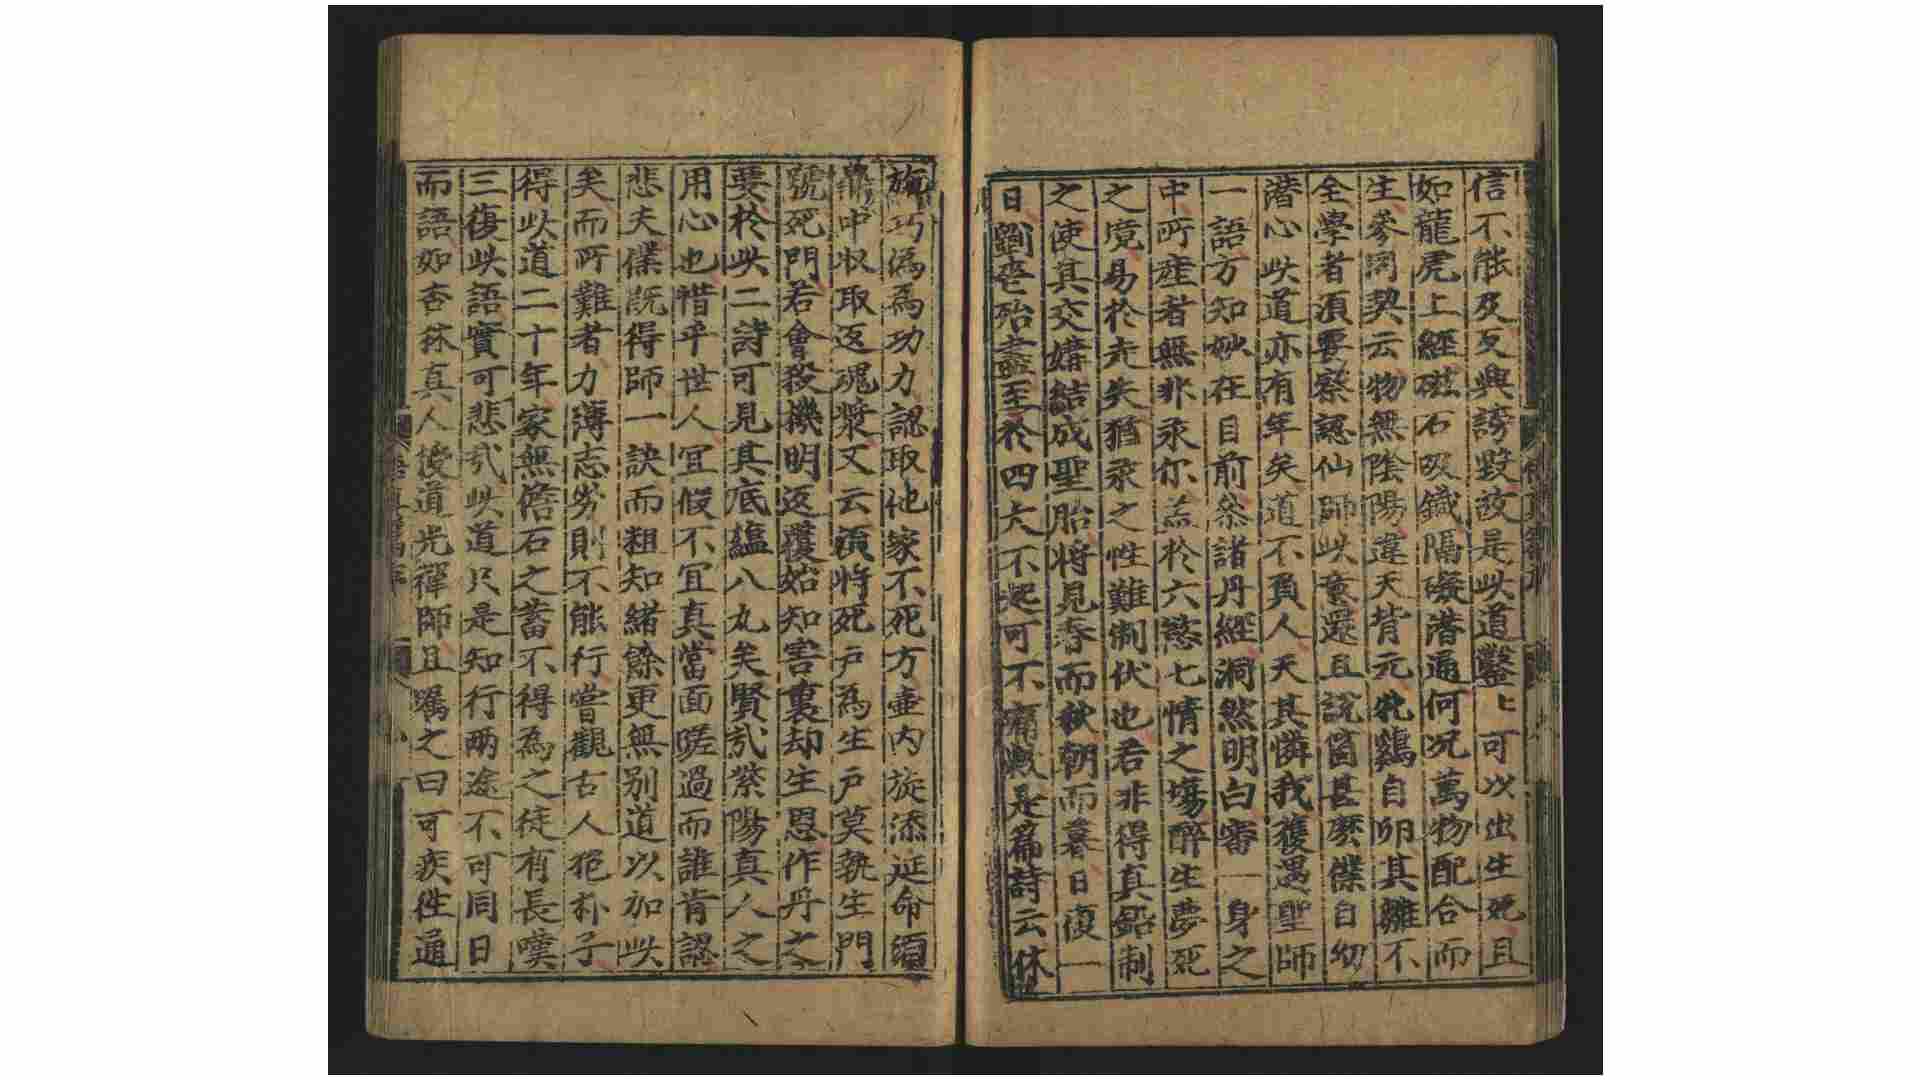 信不能及反興謗毀故是此道鑿鑿可以出生死且
如龍虎上經磁石吸鐵隔礙潜通何况萬物配合而
生參同契云物無隂陽違天背元牝鷄自卵其雛不
全學者湏要察認仙師此意還且説箇甚麽僕自幼
潜心此道亦有年矣道不負人天其憐我獲遇聖師
一語方知妙在目前叅諸丹經洞然明白審一身之
中所産者無非汞尔盖於六慾七情之塲醉生夢死
之境易於走失猶汞之性難制伏也若非得真鉛制
之使其交媾結成聖胎將見春而秋朝而暮日復一
日劉喪殆盡至於四大不起可不痛慨是篇詩云休
施巧偽爲功力認取他家不死方壷内旋添延命須
鼎中收取返魂漿又云湏將死户爲生户莫執生門
號死門若會殺機明返覆始知害裏却生恩作丹之
要於此二詩可見其底蘊八九矣賢哉紫陽真人之
用心也惜乎世人冝假不冝真當面蹉過而誰肯認
悲夫僕既得師一訣而粗知緒餘更無别道以加此
矣而所難者力薄志劣則不能行嘗觀古人抱朴子
得此道二十年家無儋石之蓄不得為之徒有長嘆
三復此語實可悲哉此道只是知行兩途不可同日
而語如杏林真人授道光禪師且囑之曰可疾徃通